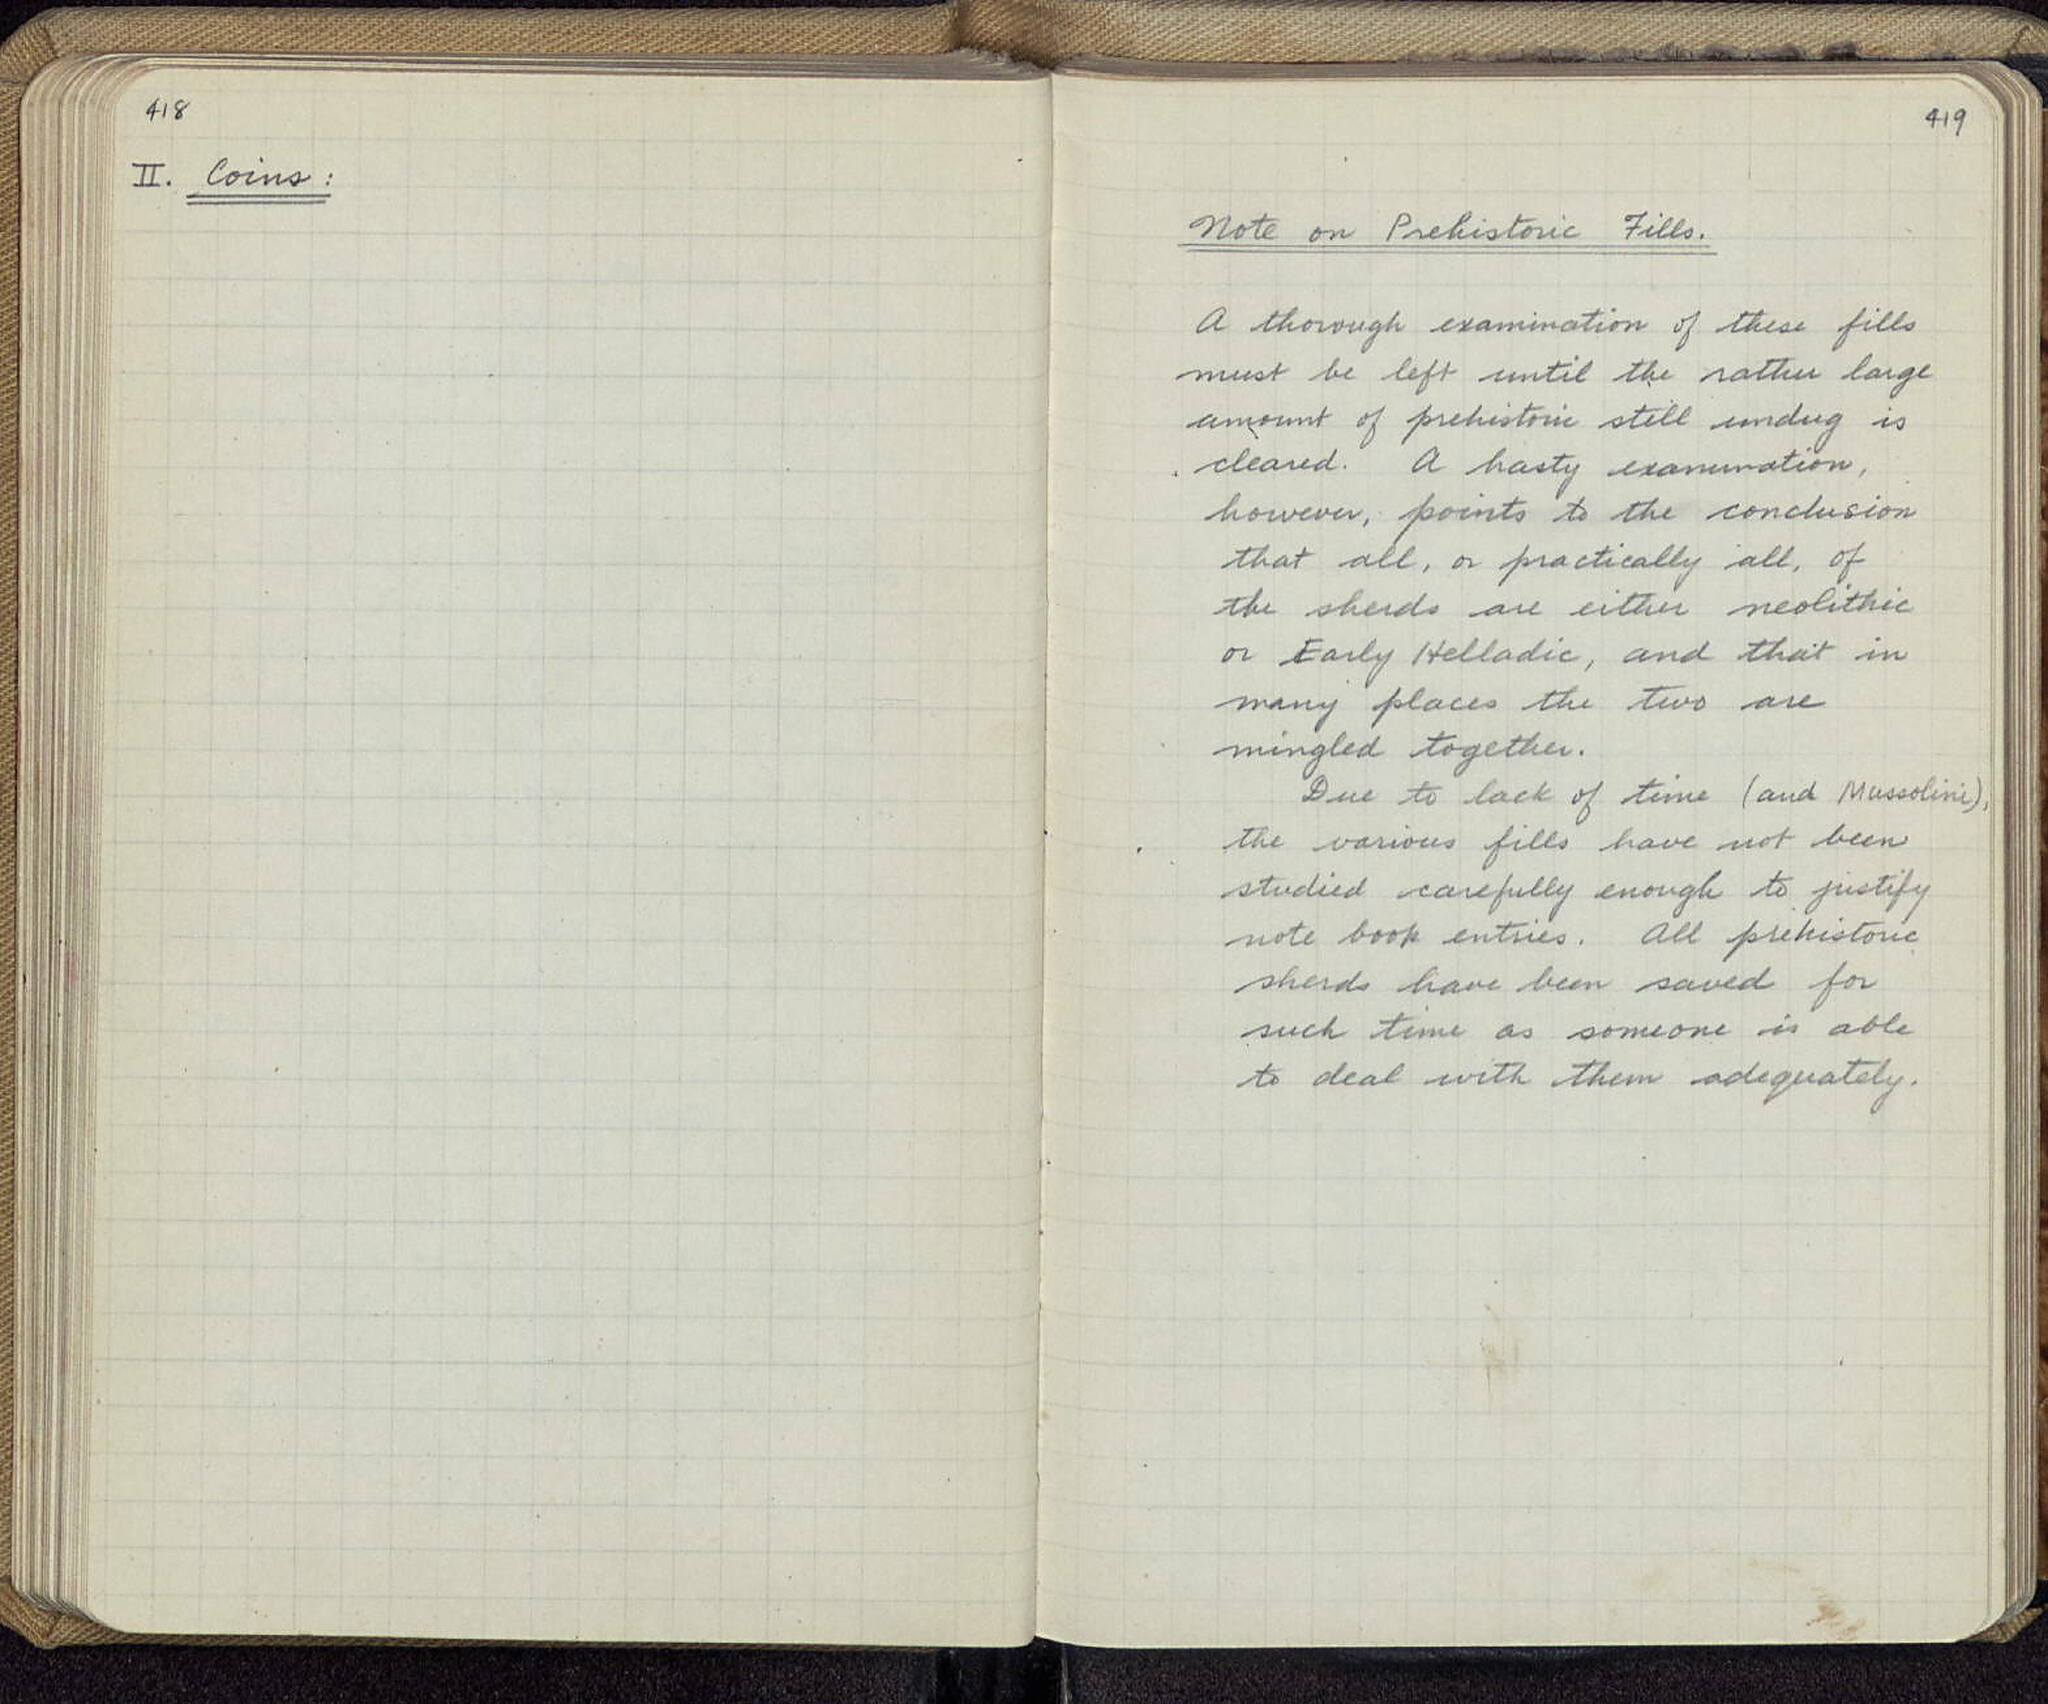 418
II. Coins:
419
Note on Prehistoric Fills.
A thorough examination of these fills
must be left until the rather large
amount of prehistoric still undug is
cleared. A hasty examination,
however, points to the conclusion
that all, or practically all, of
the sherds are either neolithic
or Early Helladic, and that in
many places the two are
mingled together.
Due to lack of time (and Mussolini),
the various fills have not been
studied carefully enough to justify
note book entries. All prehistoric
sherds have been saved for
such time as someone is able
to deal with them adequately.